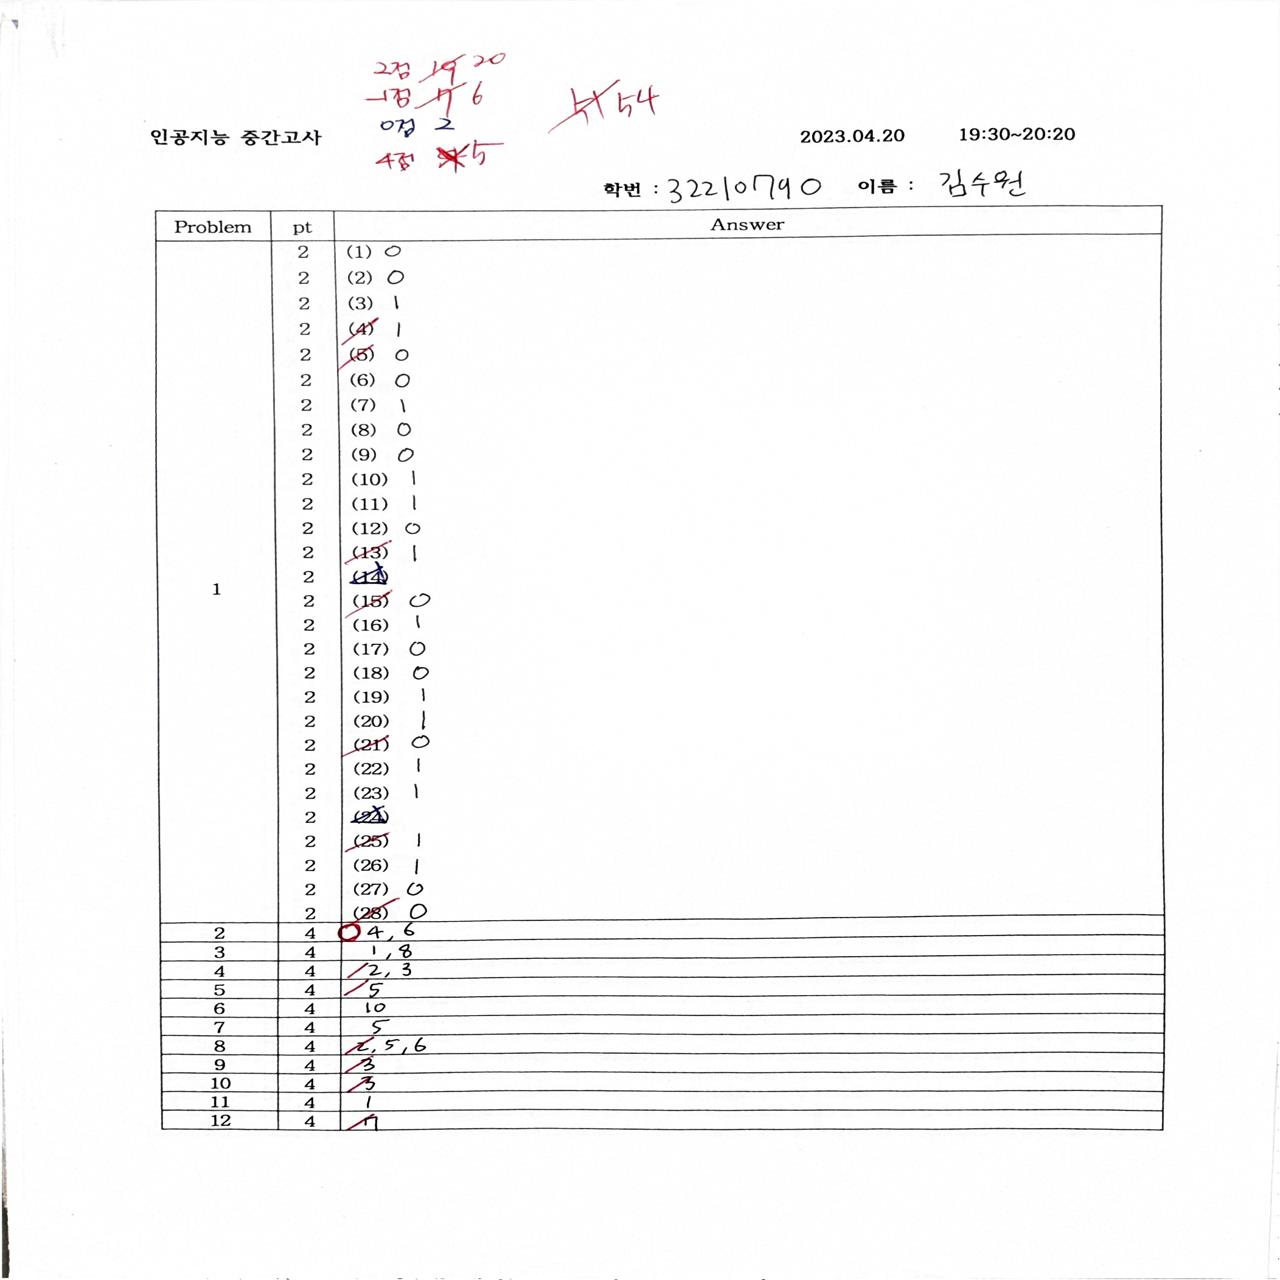 2점 19 20
-1점 7 6
51 54
0점 2
인공지능 중간고사
2023.04.20 19:30~20:20
4점 5
학번 : 32210790 이름 : 김수원
Problem pt Answer
2 (1) 0
2 (2) 0
2 (3) 1
2 (4) 1
2 (5) 0
2 (6) 0
2 (7) 1
2 (8) 0
2 (9) 0
2 (10) 1
2 (11) 1
2 (12) 0
2 (13) 1
2 (14)
1
2 (15) 0
2 (16) 1
2 (17) 0
2 (18) 0
2 (19) 1
2 (20) 1
2 (21) 0
2 (22) 1
2 (23) 1
2 (24)
2 (25) 1
2 (26) 1
2 (27) 0
2 (28) 0
2 4 4, 6
3 4 1, 8
4 4 2, 3
5 4 5
6 4 10
7 4 5
8 4 2, 5, 6
9 4 3
10 4 3
11 4 1
12 4 7